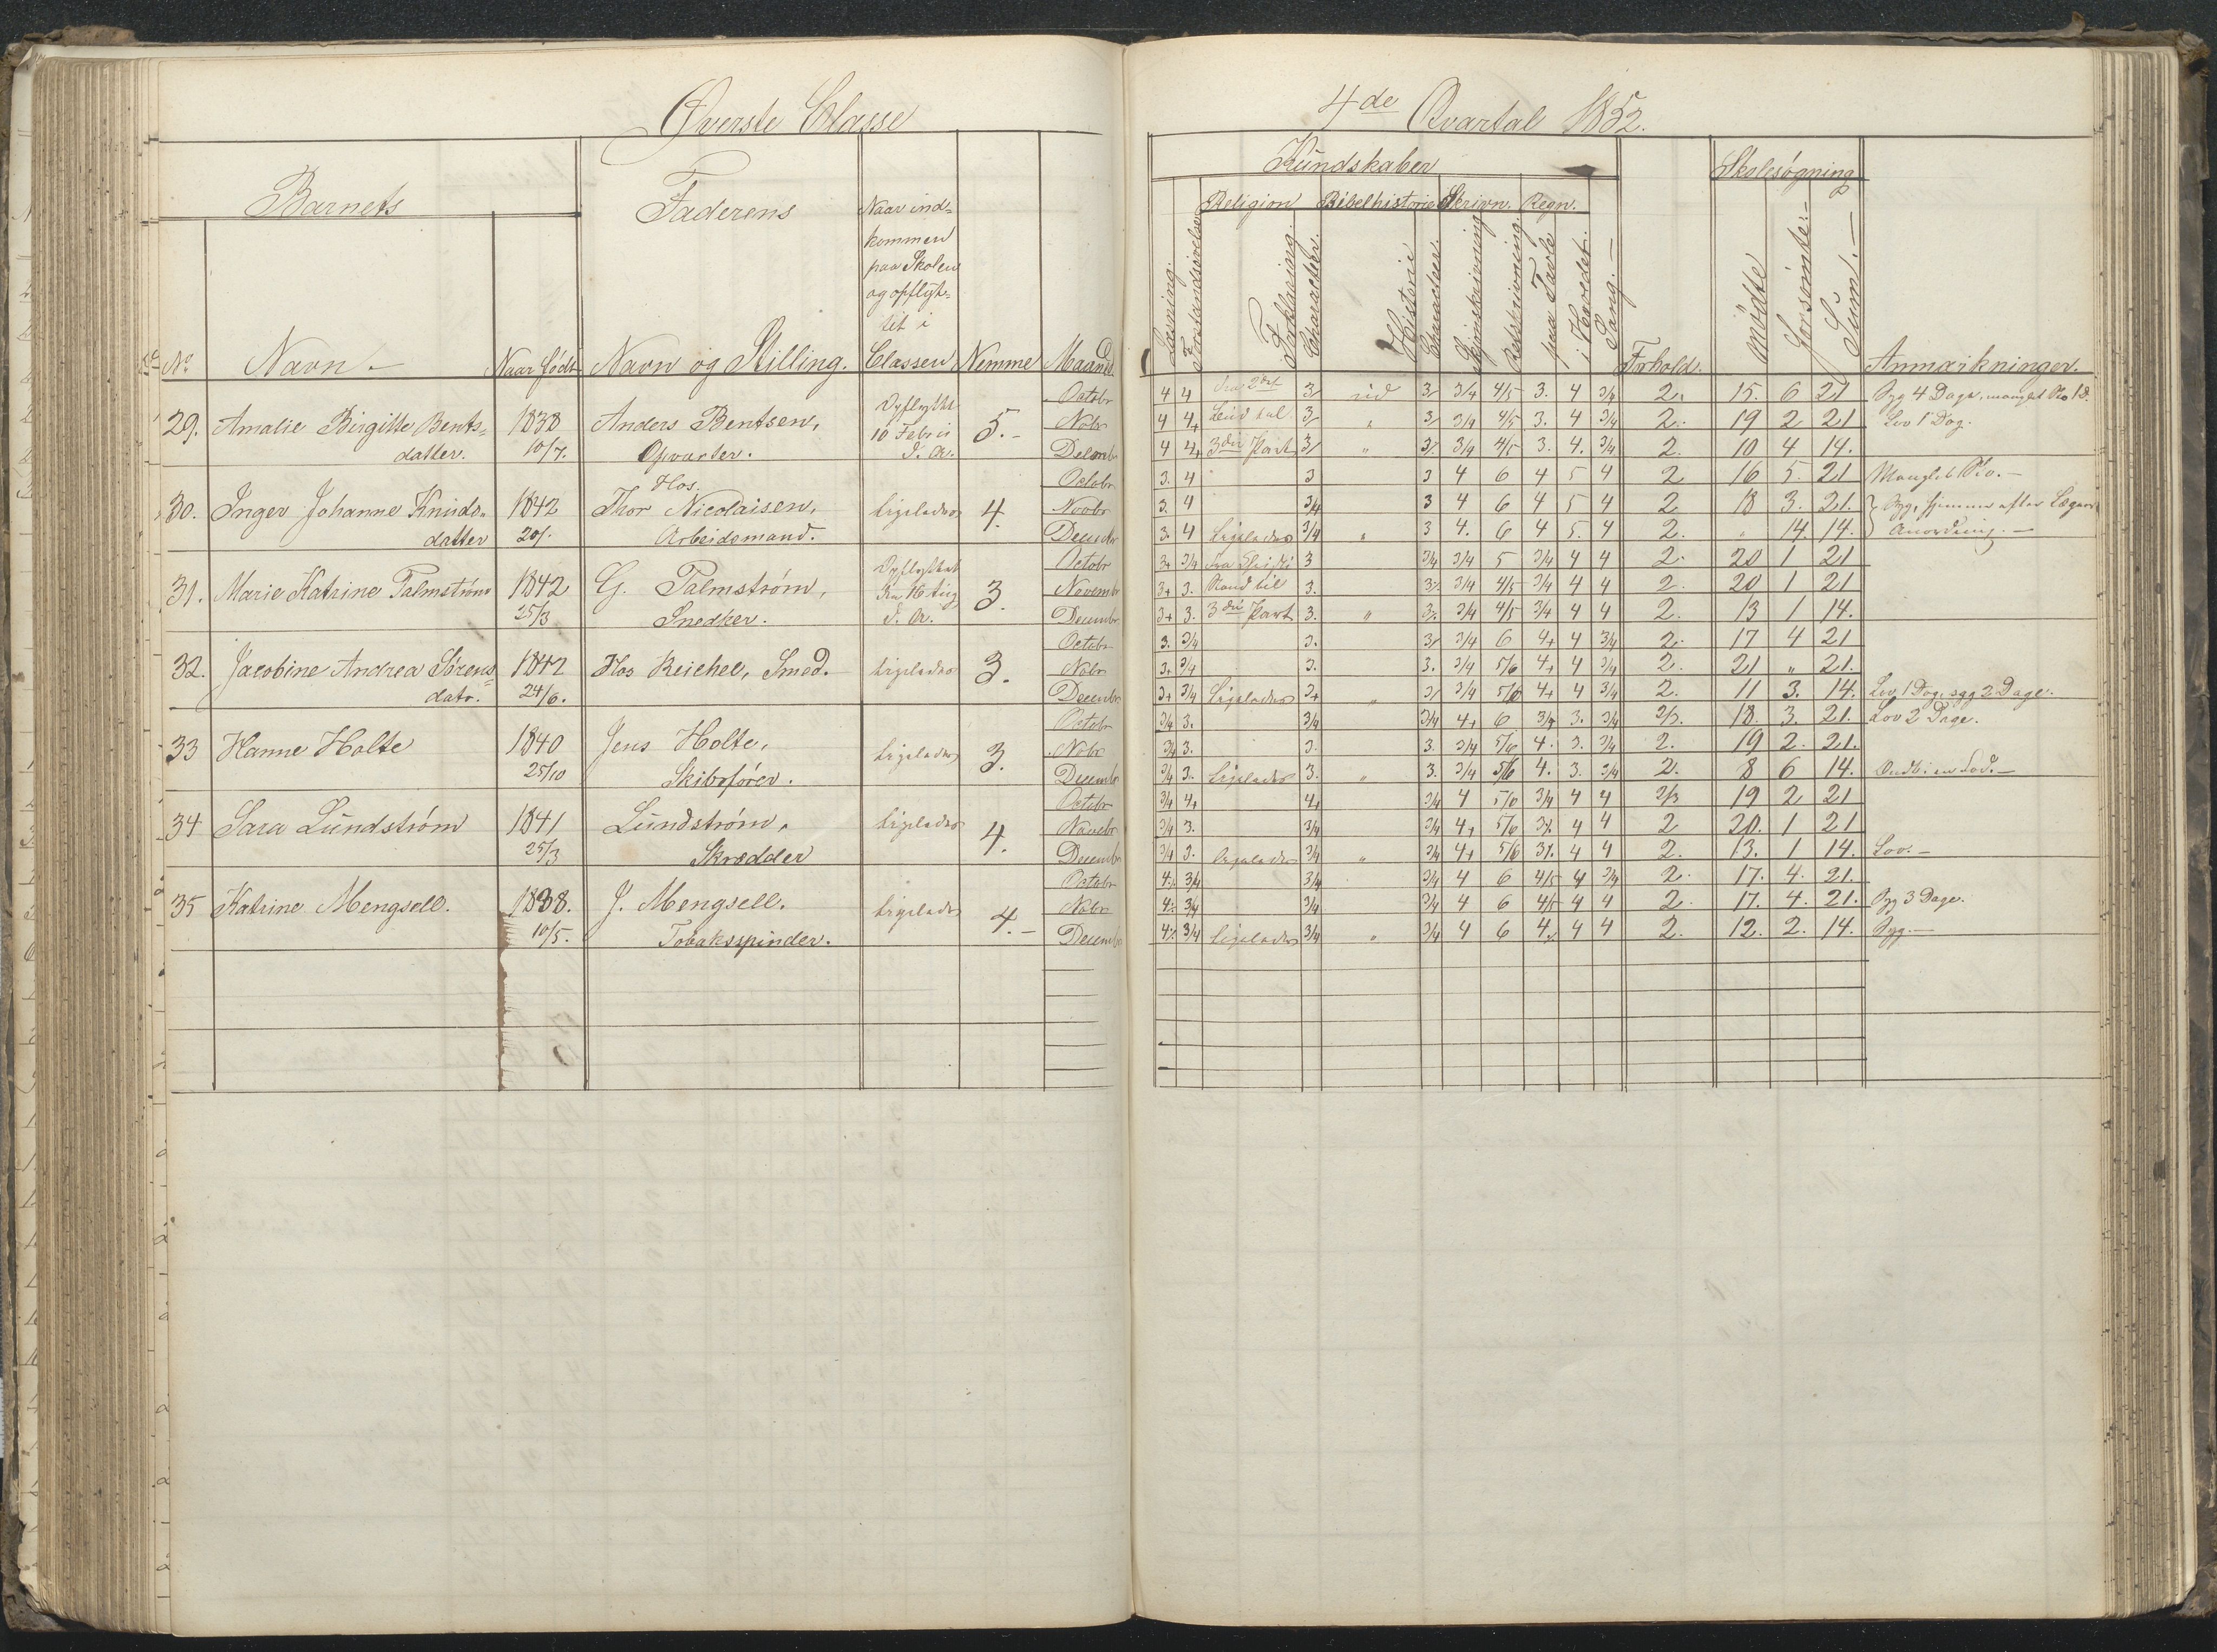 Øverste Classe
Barnets
Faderens
Naar ind-
kommen
paa Skolen
og opflyt-
tet i
Classen
Nº
Navn
Naar født
Navn og Stilling.
Nemme
Maaned.
29. Amalie Birgitte Bents- 1838 Anders Bentsen, Opflyttet 5.- Octobr
datter. 10/7. Opvarter. 10 Febr. Nobr
d. A. Decembr
30. Inger Johanne Knuds- 1842 Hos Ligeledes 4. Octobr
datter 20/. Thor Nicolaisen, Novbr
Arbeidsmand. Decembr
31. Marie Katrine Palmstrøm 1842 G. Palmstrøm, Opflyttet 3. Octobr
25/3 Snedker. 16 Aug Novembr
d. A. Decembr
32. Jacobine Andrea Sørens- 1842 Hos Reichel, Smed. Ligeledes 3. Octobr
datr. 24/6. Nobr
Decembr
33 Hanne Holte 1840 Jens Holte, Ligeledes 3. Octobr
25/10 Skibsfører. Nobr
Decembr
34 Sara Lundstrøm 1841 Lundstrøm, Ligeledes 4. Octobr
25/3 Skrædder Novebr
Decembr
35 Katrine Mengsell. 1838. J. Mengsell. Ligeledes 4.- Octobr
10/5. Tobaksspinder. Nobr
Decembr
4de Qvartal 1852.
Kundskaber
Skolesøgning
Religion Bibelhistorie Skrivn. Regn.
Læsning.
Forstandsøvelser
Forklaring.
Character.
Historie
Character.
Skjønskrivning
Retskrivning.
paa Tavle
i Hovedet.
Sang.
Forhold.
mødte
Forsømte.
Sum.
Anmærkninger.
4 4 Fra 2det 3 ud 3 3/4 4/5 3. 4 3/4 2. 15. 6 21 Syg 4 Dage, manglet Sko 1 D.
4 4+ Leed til 3 " 3 3/4 4/5 3. 4 3/4 2. 19 2 21 Lov 1 Dag.
4 4+ 3die Part 3 " 3 3/4 4/5 3. 4. 3/4 2. 10 4 14.
3. 4 3 3 4 6 4 5 4 2 16 5. 21 Manglet Sko.
3. 4 3/4 3 4 6 4 5 4 2 18 3. 21. Syg, hjemme efter Lægens
3. 4 Ligeledes 3/4 " 3 4. 6 4 5. 4 2. " 14. 14. Anordning.
3+ 3/4 Fra Christi 3 3/4 3/4 5 3/4 4 4 2. 20 1 21
3+ 3. Stand til 3. 3. 3/4 4/5 3/4 4 4 2. 20 1 21
3+ 3. 3die Part 3. " 3. 3/4 4/5 3/4 4 4 2. 13 1 14.
3. 3/4 3. 3 3/4 6 4+ 4 3/4 2. 17 4 21
3+ 3/4 3. 3. 3/4 5/6 4+ 4 3/4 2. 21 " 21.
3+ 3/4 Ligeledes 3+ " 3 3/4 5/6 4+ 4 3/4 2. 11 3. 14. Lov 1 Dag, syg 2 Dage.
3/4 3. 3/4 3/4 4+ 6 3/4 3. 3/4 2/3. 18. 3. 21. Lov 2 Dage.
3/4 3. 3. 3. 3/4 5/6 4. 3. 3/4 2. 19 2. 21.
3/4 3. Ligeledes 3. " 3. 3/4 5/6 4. 3. 3/4 2. 8 6 14. Ondt i en Fod.
3/4 4+ 4+ 3/4 4 5/6 3/4 4 4 2/3 19 2 21
3/4 3. 3/4 3/4 4+ 5/6 3. 4 4 2 20. 1 21
3/4 3. Ligeledes 3/4 " 3/4 4+ 5/6 3. 4 4 2. 13. 1 14. Lov.
4. 3/4 3/4 3/4 4 6 4/5 4 3/4 2. 17. 4. 21.
4. 3/4 3/4 3/4 4 6 4/5 4 4 2. 17. 4. 21. Syg 3 Dage.
4. 3/4 Ligeledes 3/4 " 3/4 4 6 4. 4 4 2. 12. 2. 14. Syg.